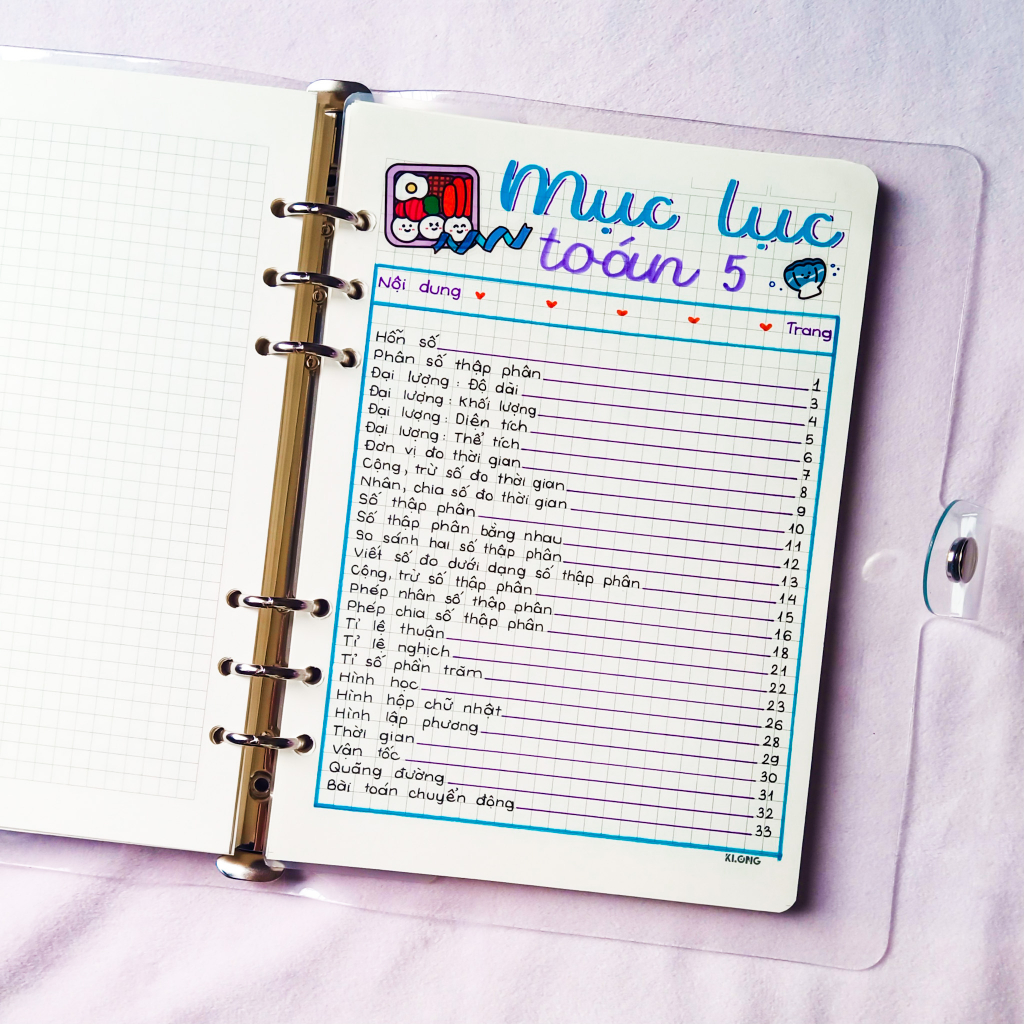 Mục lục
toán 5
Nội dung Trang
Hỗn số 1
Phân số thập phân 3
Đại lượng: Độ dài 4
Đại lượng: Khối lượng 5
Đại lượng: Diện tích 6
Đại lượng: Thể tích 7
Đơn vị đo thời gian 8
Cộng, trừ số đo thời gian 9
Nhân, chia số đo thời gian 10
Số thập phân 11
Số thập phân bằng nhau 12
So sánh hai số thập phân 13
Viết số đo dưới dạng số thập phân 14
Cộng, trừ số thập phân 15
Phép nhân số thập phân 16
Phép chia số thập phân 18
Tỉ lệ thuận 21
Tỉ lệ nghịch 22
Tỉ số phần trăm 23
Hình học 26
Hình hộp chữ nhật 28
Hình lập phương 29
Thời gian 30
Vận tốc 31
Quãng đường 32
Bài toán chuyển động 33
KLONG